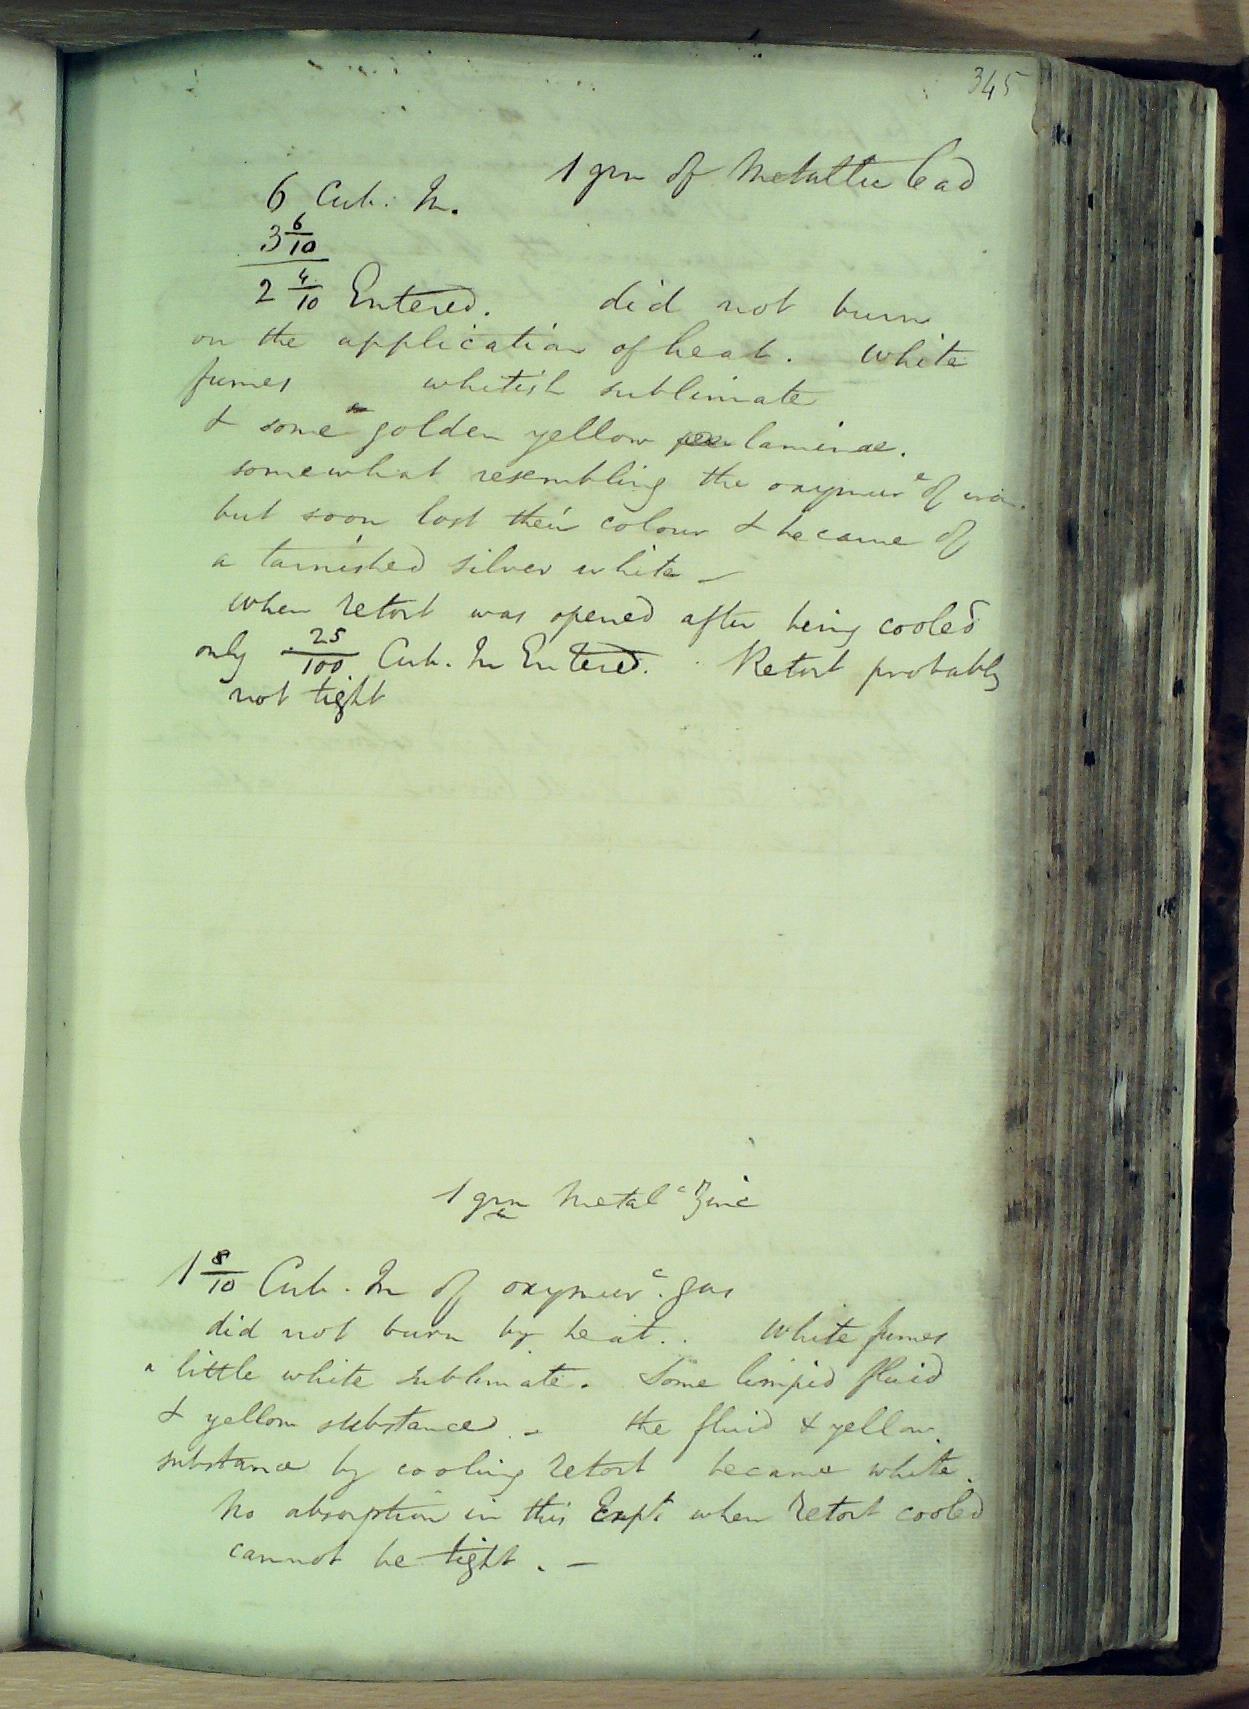 345
1 grn of Metallic lead
6 Cub: In.
3 6/10
2 4/10 Entered. did not burn
on the application of heat. White
fumes whitish sublimate
& some golden yellow laminae.
somewhat resembling the oxymure of iron.
but soon lost their colour & became of
a tarnished silver white —
When retort was opened after being cooled
only 25/100 Cub. In Entered. Retort probably
not tight
1 grn Metalc Zinc
1 8/10 Cub. In of oxymurc. gas
did not burn by heat.. White fumes
a little white sublimate. Some limpid fluid
& yellow substance. – the fluid & yellow.
substance by cooling retort became white.
No absorption in this Expt when retort cooled
cannot be tight. —